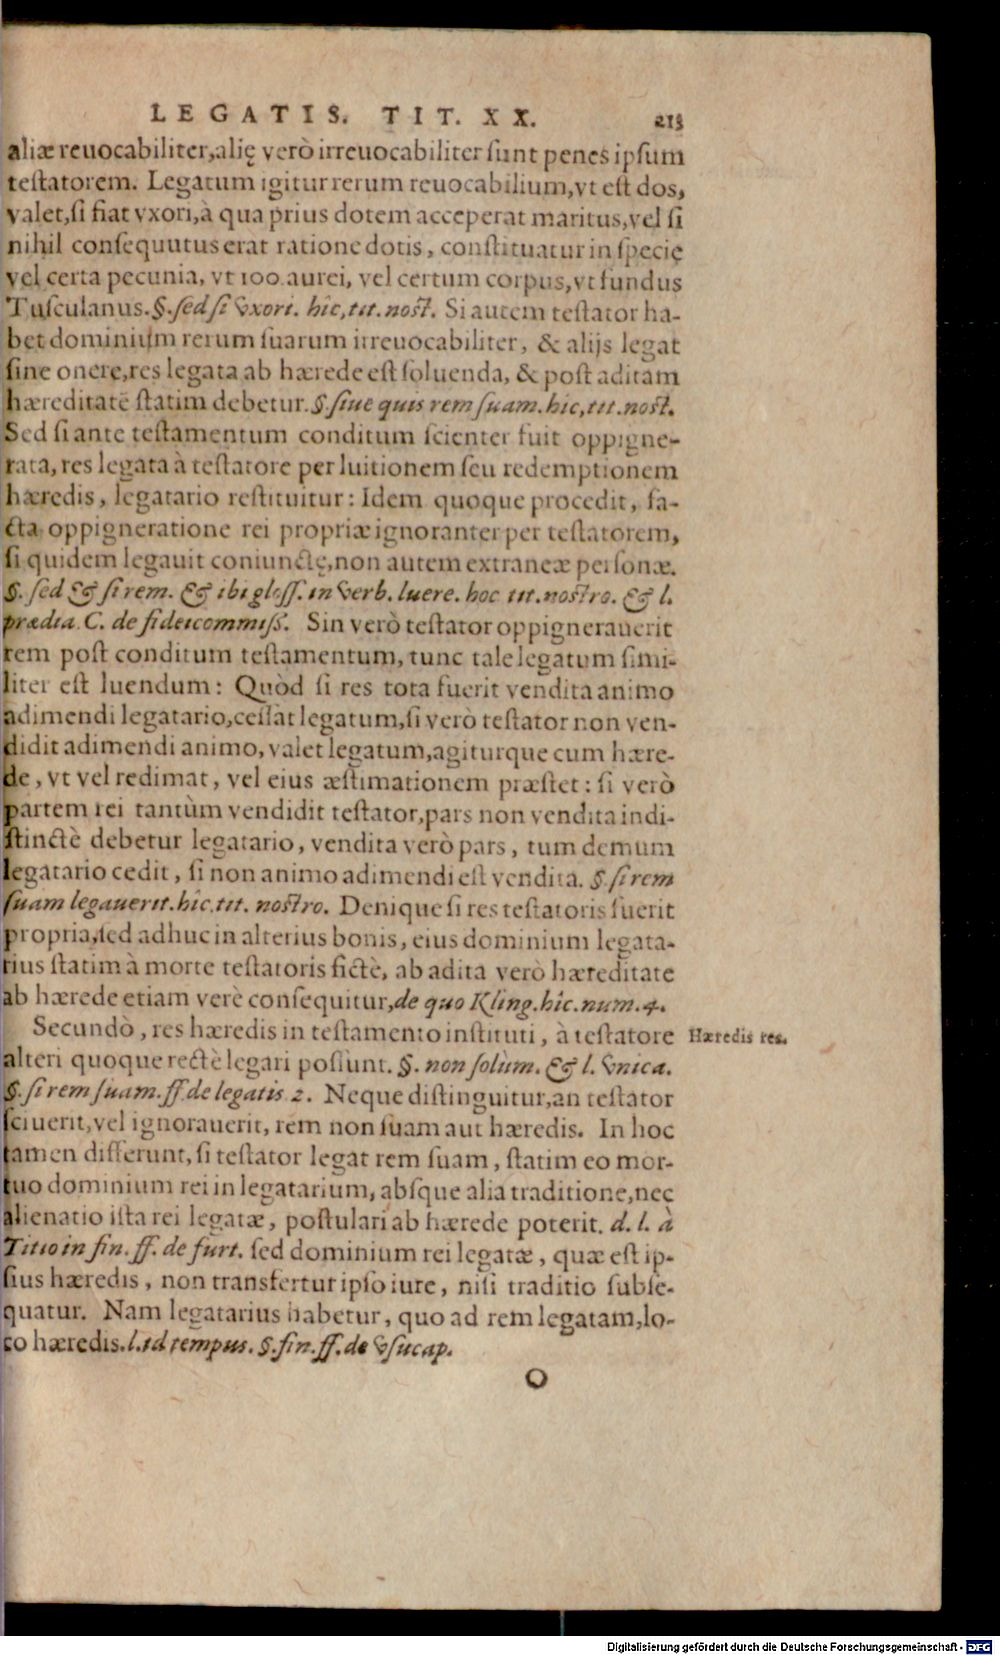 LEGATIS. TIT. XX. 213
aliæ reuocabiliter, alię verò irreuocabiliter sunt penes ipsum
testatorem. Legatum igitur rerum reuocabilium, vt est dos,
valet, si fiat vxori, à qua prius dotem acceperat maritus, vel si
nihil consequutus erat ratione dotis, constituatur in specie
vel certa pecunia, vt 100. aurei, vel certum corpus, vt fundus
Tusculanus. §. sed si vxori. hîc, tit. nost. Si autem testator ha-
bet dominium rerum suarum irreuocabiliter, & alijs legat
sine onere, res legata ab hærede est soluenda, & post aditam
hæreditatē statim debetur. §. siue quis rem suam. hic, tit. nost.
Sed si ante testamentum conditum scienter fuit oppigne-
rata, res legata à testatore per luitionem seu redemptionem
hæredis, legatario restituitur: Idem quoque procedit, fa-
cta oppigneratione rei propriæ ignoranter per testatorem,
si quidem legauit coniunctę, non autem extraneæ personæ.
§. sed & si rem. & ibi gloss. in verb. luere. hoc tit. nostro. & l.
prædia. C. de fideicommiss. Sin verò testator oppignerauerit
rem post conditum testamentum, tunc tale legatum simi-
liter est luendum: Quòd si res tota fuerit vendita animo
adimendi legatario, cessat legatum, si verò testator non ven-
didit adimendi animo, valet legatum, agiturque cum hære-
de, vt vel redimat, vel eius æstimationem præstet: si verò
partem rei tantùm vendidit testator, pars non vendita indi-
stinctè debetur legatario, vendita verò pars, tum demum
legatario cedit, si non animo adimendi est vendita. §. si rem
suam legauerit. hîc. tit. nostro. Denique si res testatoris fuerit
propria, sed adhuc in alterius bonis, eius dominium legata-
rius statim à morte testatoris fictè, ab adita verò hæreditate
ab hærede etiam verè consequitur, de quo Kling. hîc. num. 4.
Secundò, res hæredis in testamento instituti, à testatore
Hæredis res.
alteri quoque rectè legari possunt. §. non solùm. & l. vnica.
§. si rem suam. ff. de legatis 2. Neque distinguitur, an testator
sciuerit, vel ignorauerit, rem non suam aut hæredis. In hoc
tamen differunt, si testator legat rem suam, statim eo mor-
tuo dominium rei in legatarium, absque alia traditione, nec
alienatio ista rei legatæ, postulari ab hærede poterit. d. l. à
Titio in fin. ff. de furt. sed dominium rei legatæ, quæ est ip-
sius hæredis, non transfertur ipso iure, nisi traditio subse-
quatur. Nam legatarius habetur, quo ad rem legatam, lo-
co hæredis. l. id tempus. §. fin. ff. de vsucap.
O
Digitalisierung gefördert durch die Deutsche Forschungsgemeinschaft - DFG